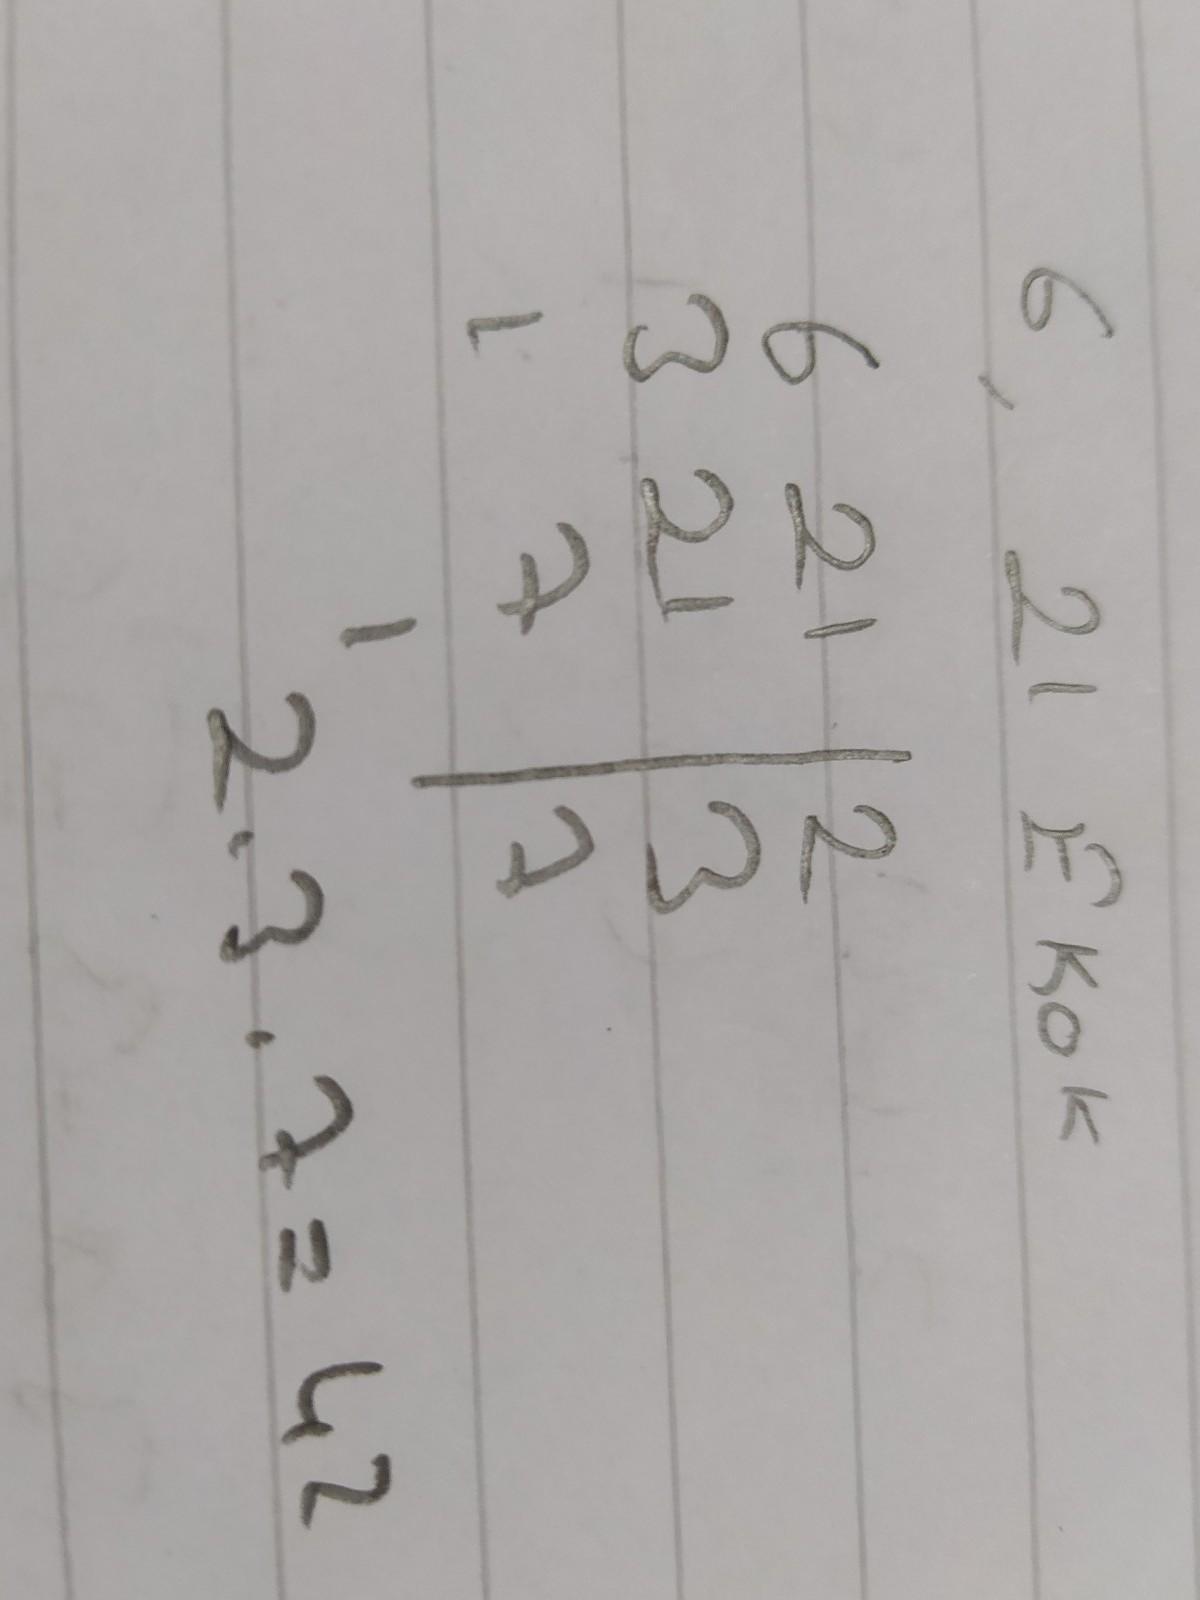 6, 21 EKOK
6 21 | 2
3 21 | 3
1 7 | 7
1
2.3.7=42